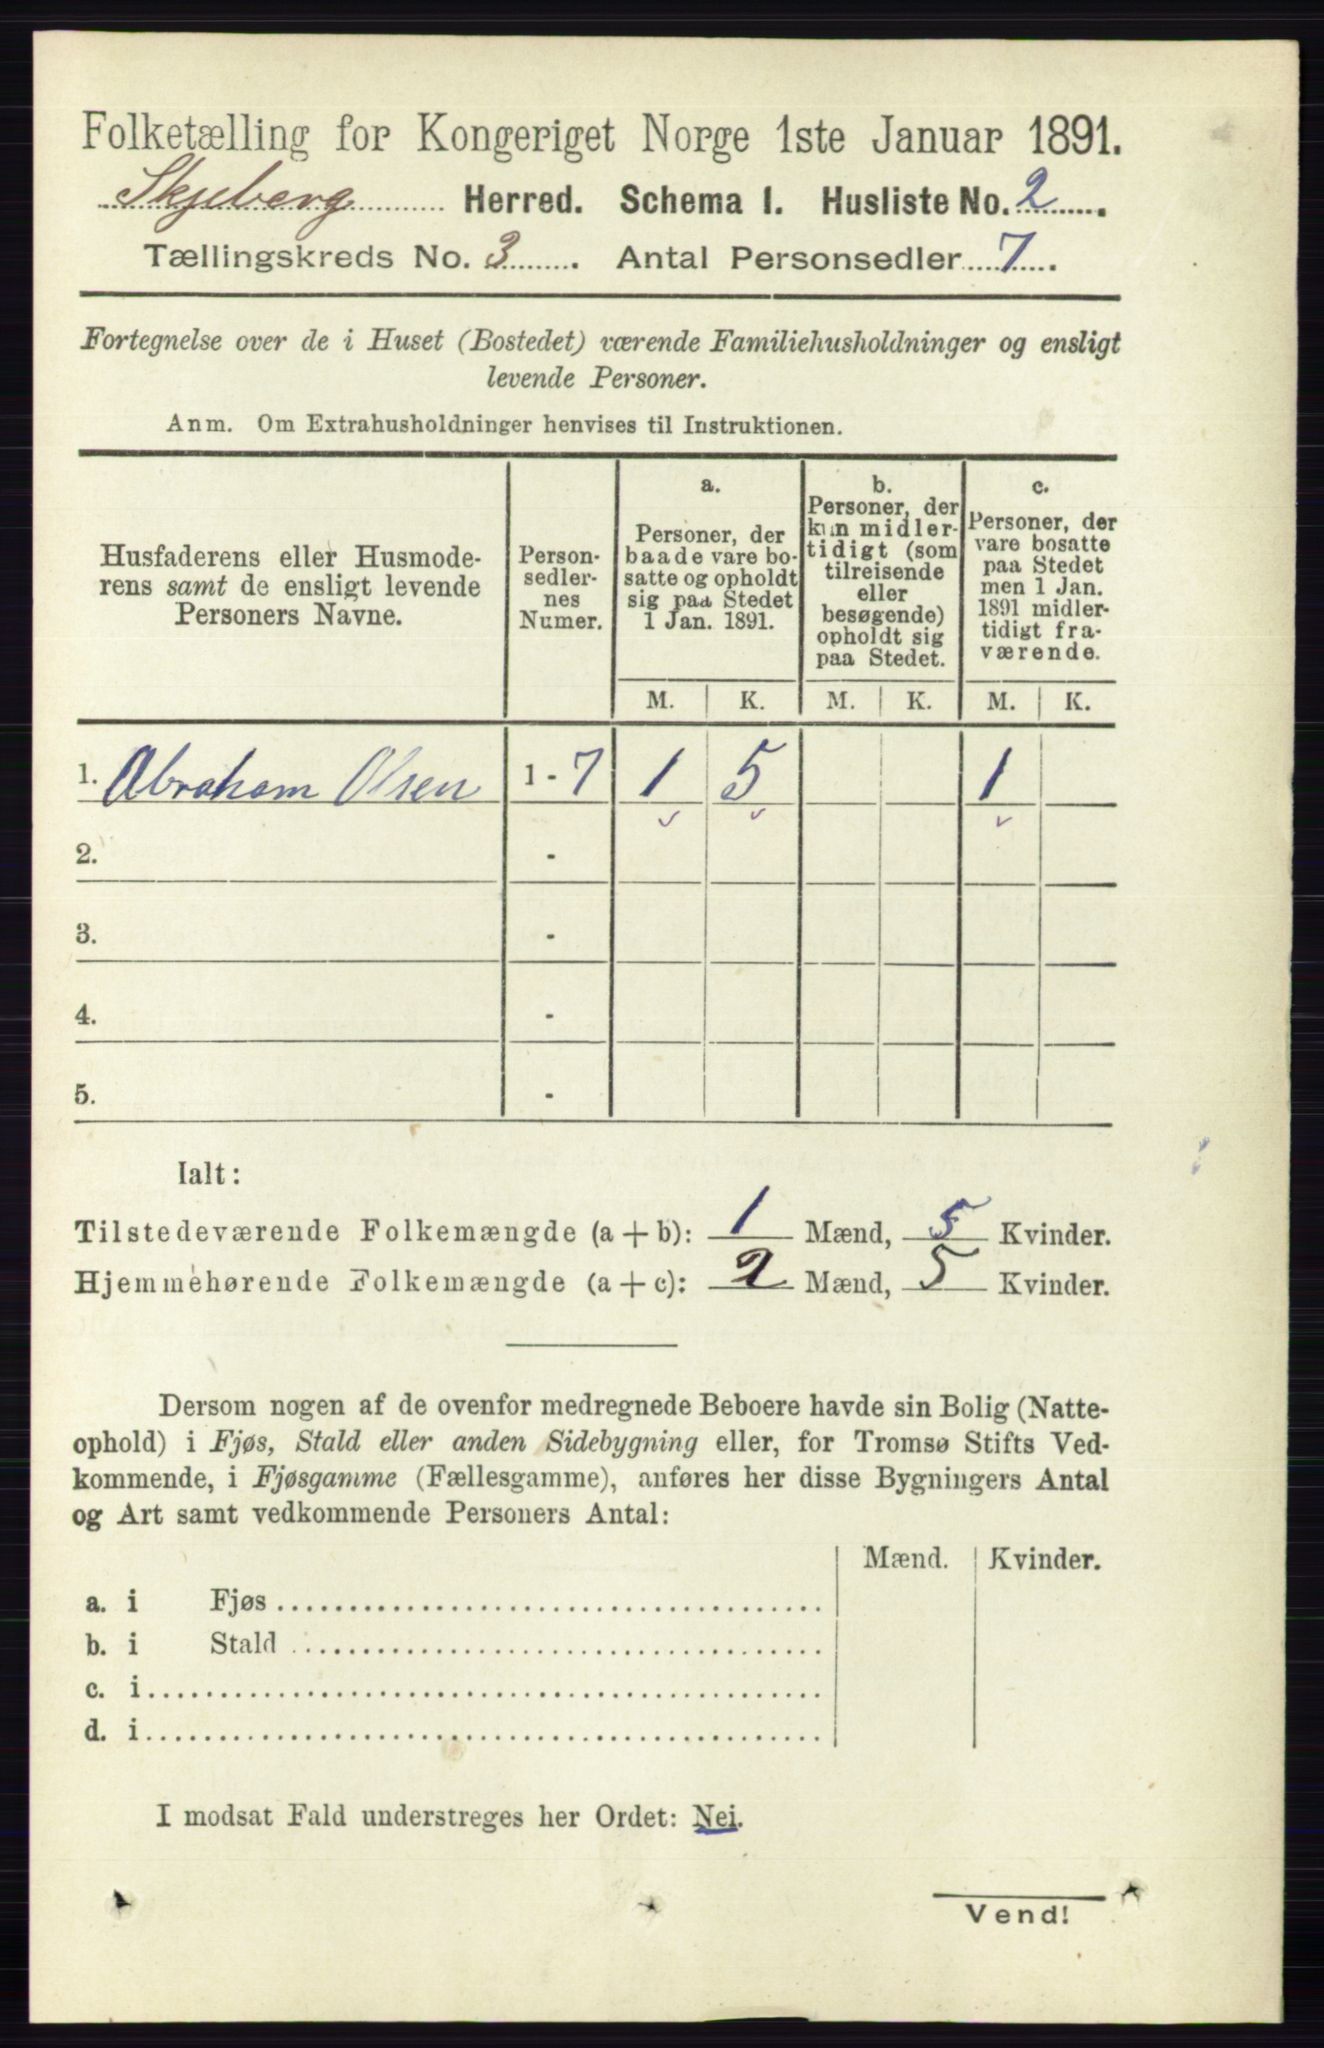 Folketælling for Kongeriget Norge 1ste Januar 1891.
Skjeberg Herred. Schema 1. Husliste No. 2
Tællingskreds No. 3 . Antal Personsedler 7 .
Fortegnelse over de i Huset (Bostedet) værende Familiehusholdninger og ensligt
levende Personer.
Anm. Om Extrahusholdninger henvises til Instruktionen.
Husfaderens eller Husmode-
rens samt de ensligt levende
Personers Navne.
Person-
sedler-
nes
Numer.
a.
Personer, der
baade vare bo-
satte og opholdt
sig paa Stedet
1 Jan. 1891.
b.
Personer, der
kun midler-
tidigt (som
tilreisende
eller
besøgende)
opholdt sig
paa Stedet.
c.
Personer, der
vare bosatte
paa Stedet
men 1 Jan.
1891 midler-
tidigt fra-
værende.
M. K. M. K. M. K.
1. Abraham Olsen 1 - 7 1 5 1
2. -
3. -
4. -
5. -
Ialt:
Tilstedeværende Folkemængde (a + b): 1 Mænd, 5 Kvinder.
Hjemmehørende Folkemængde (a + c): 2 Mænd, 5 Kvinder.
Dersom nogen af de ovenfor medregnede Beboere havde sin Bolig (Natte-
ophold) i Fjøs, Stald eller anden Sidebygning eller, for Tromsø Stifts Ved-
kommende, i Fjøsgamme (Fællesgamme), anføres her disse Bygningers Antal
og Art samt vedkommende Personers Antal:
Mænd. Kvinder.
a. i Fjøs
b. i Stald
c. i
d. i
I modsat Fald understreges her Ordet: Nei.
Vend!